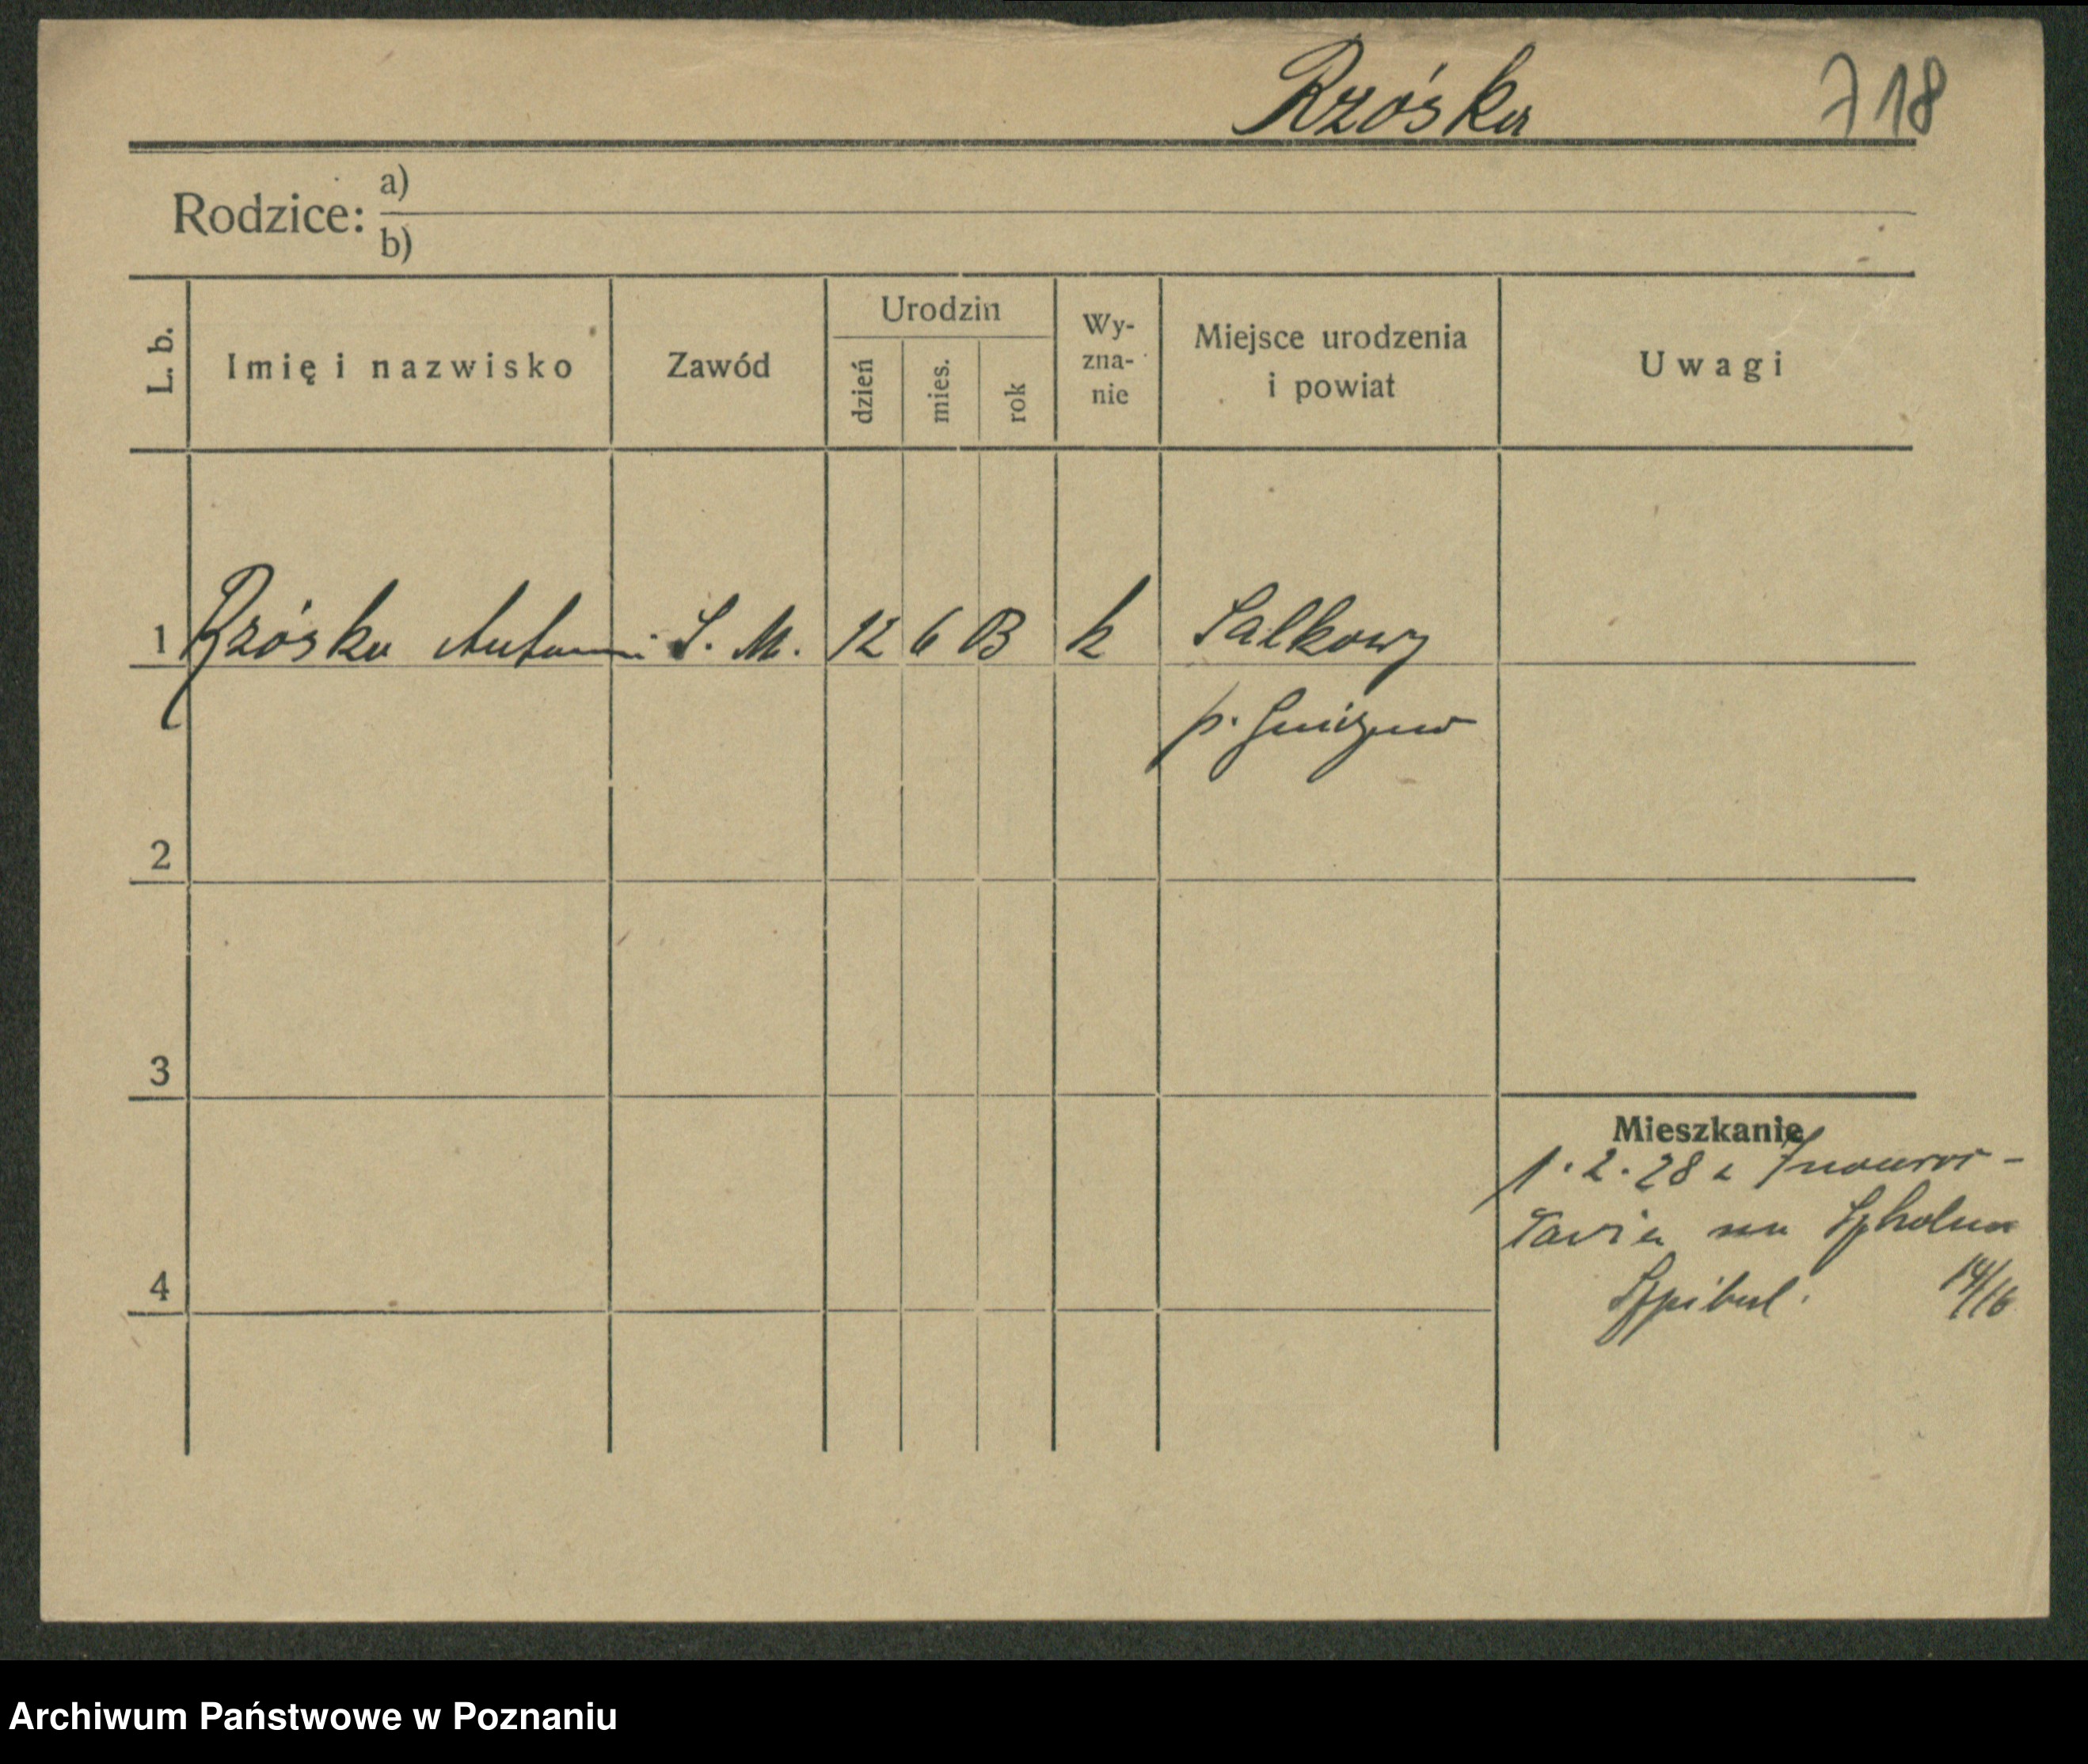 Rzóska 718
Rodzice: a)
b)
L. b.
Imię i nazwisko
Zawód
Urodzin
dzień
mies.
rok
Wy-
zna-
nie
Miejsce urodzenia
i powiat
Uwagi
1 Rzóska Antoni S. M. 12 6 03 k Sałkowy
p. Gniezno
2
3
4
Mieszkanie
1.2.28 z Inowroc-
ławia na Szkolna
Szpital. 14/16
Archiwum Państwowe w Poznaniu